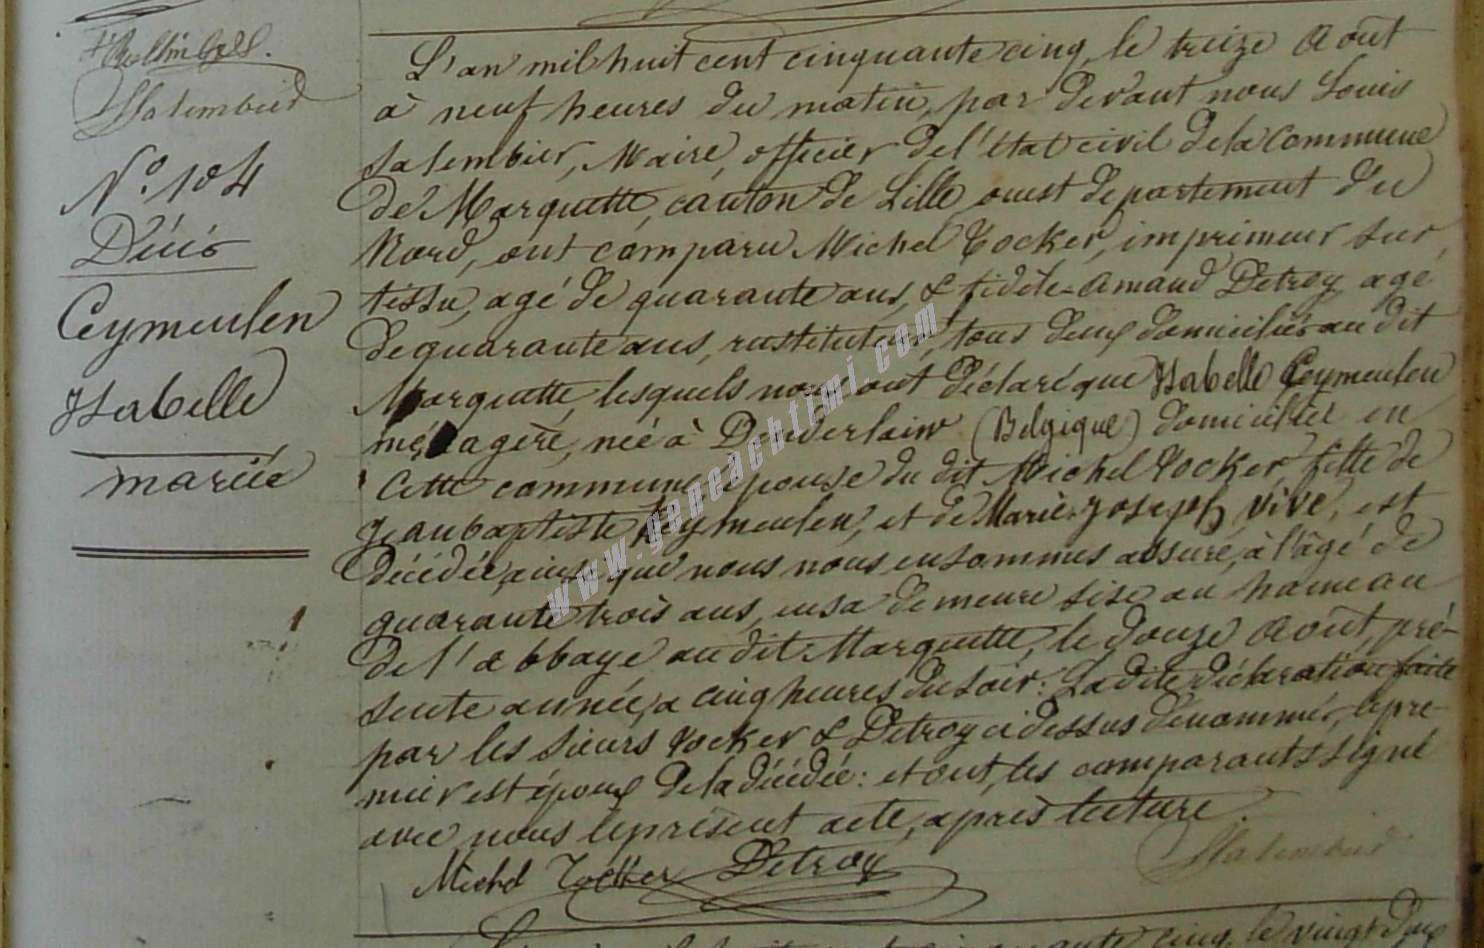 Salembier
N°. 104
Décès
Ceymeulen
Isabelle
mariée
L'an mil huit cent cinquante cinq, le treize Aout
à neuf heures du matin, par devant nous Louis
Salembier, Maire, officier de l'état civil de la commune
de Marquette, canton de Lille ouest département du
Nord, ont comparu Michel Tocker, imprimeur sur
tissu, agé de quarante ans, & fidèle-Amand Detroy, agé
de quarante ans, instituteur, tous deux domiciliés au dit
Marquette, lesquels nous ont déclaré que Isabelle Ceymeulen
ménagère, née à (Belgique) domiciliée en
cette commune, épouse du dit Michel Tocker, fille de
Jean baptiste Keymeulen, et de Marie-Joseph Vivé, est
décédée, ainsi que nous nous en sommes assuré, à l'âgé de
quarante trois ans, en sa demeure sise au hameau
de l'abbaye au dit Marquette, le douze Aout, pré-
sente année, à cinq heures du soir: La dite déclaration faite
par les sieurs Tocker & Detroy ci dessus dénommés, le pre-
mier est époux de la décédée: et ont, les comparants signé
avec nous le présent acte, après lecture.
Michel Tocker Detroy
Salembier
cinq, le vingt deux
www.geneachtimi.com